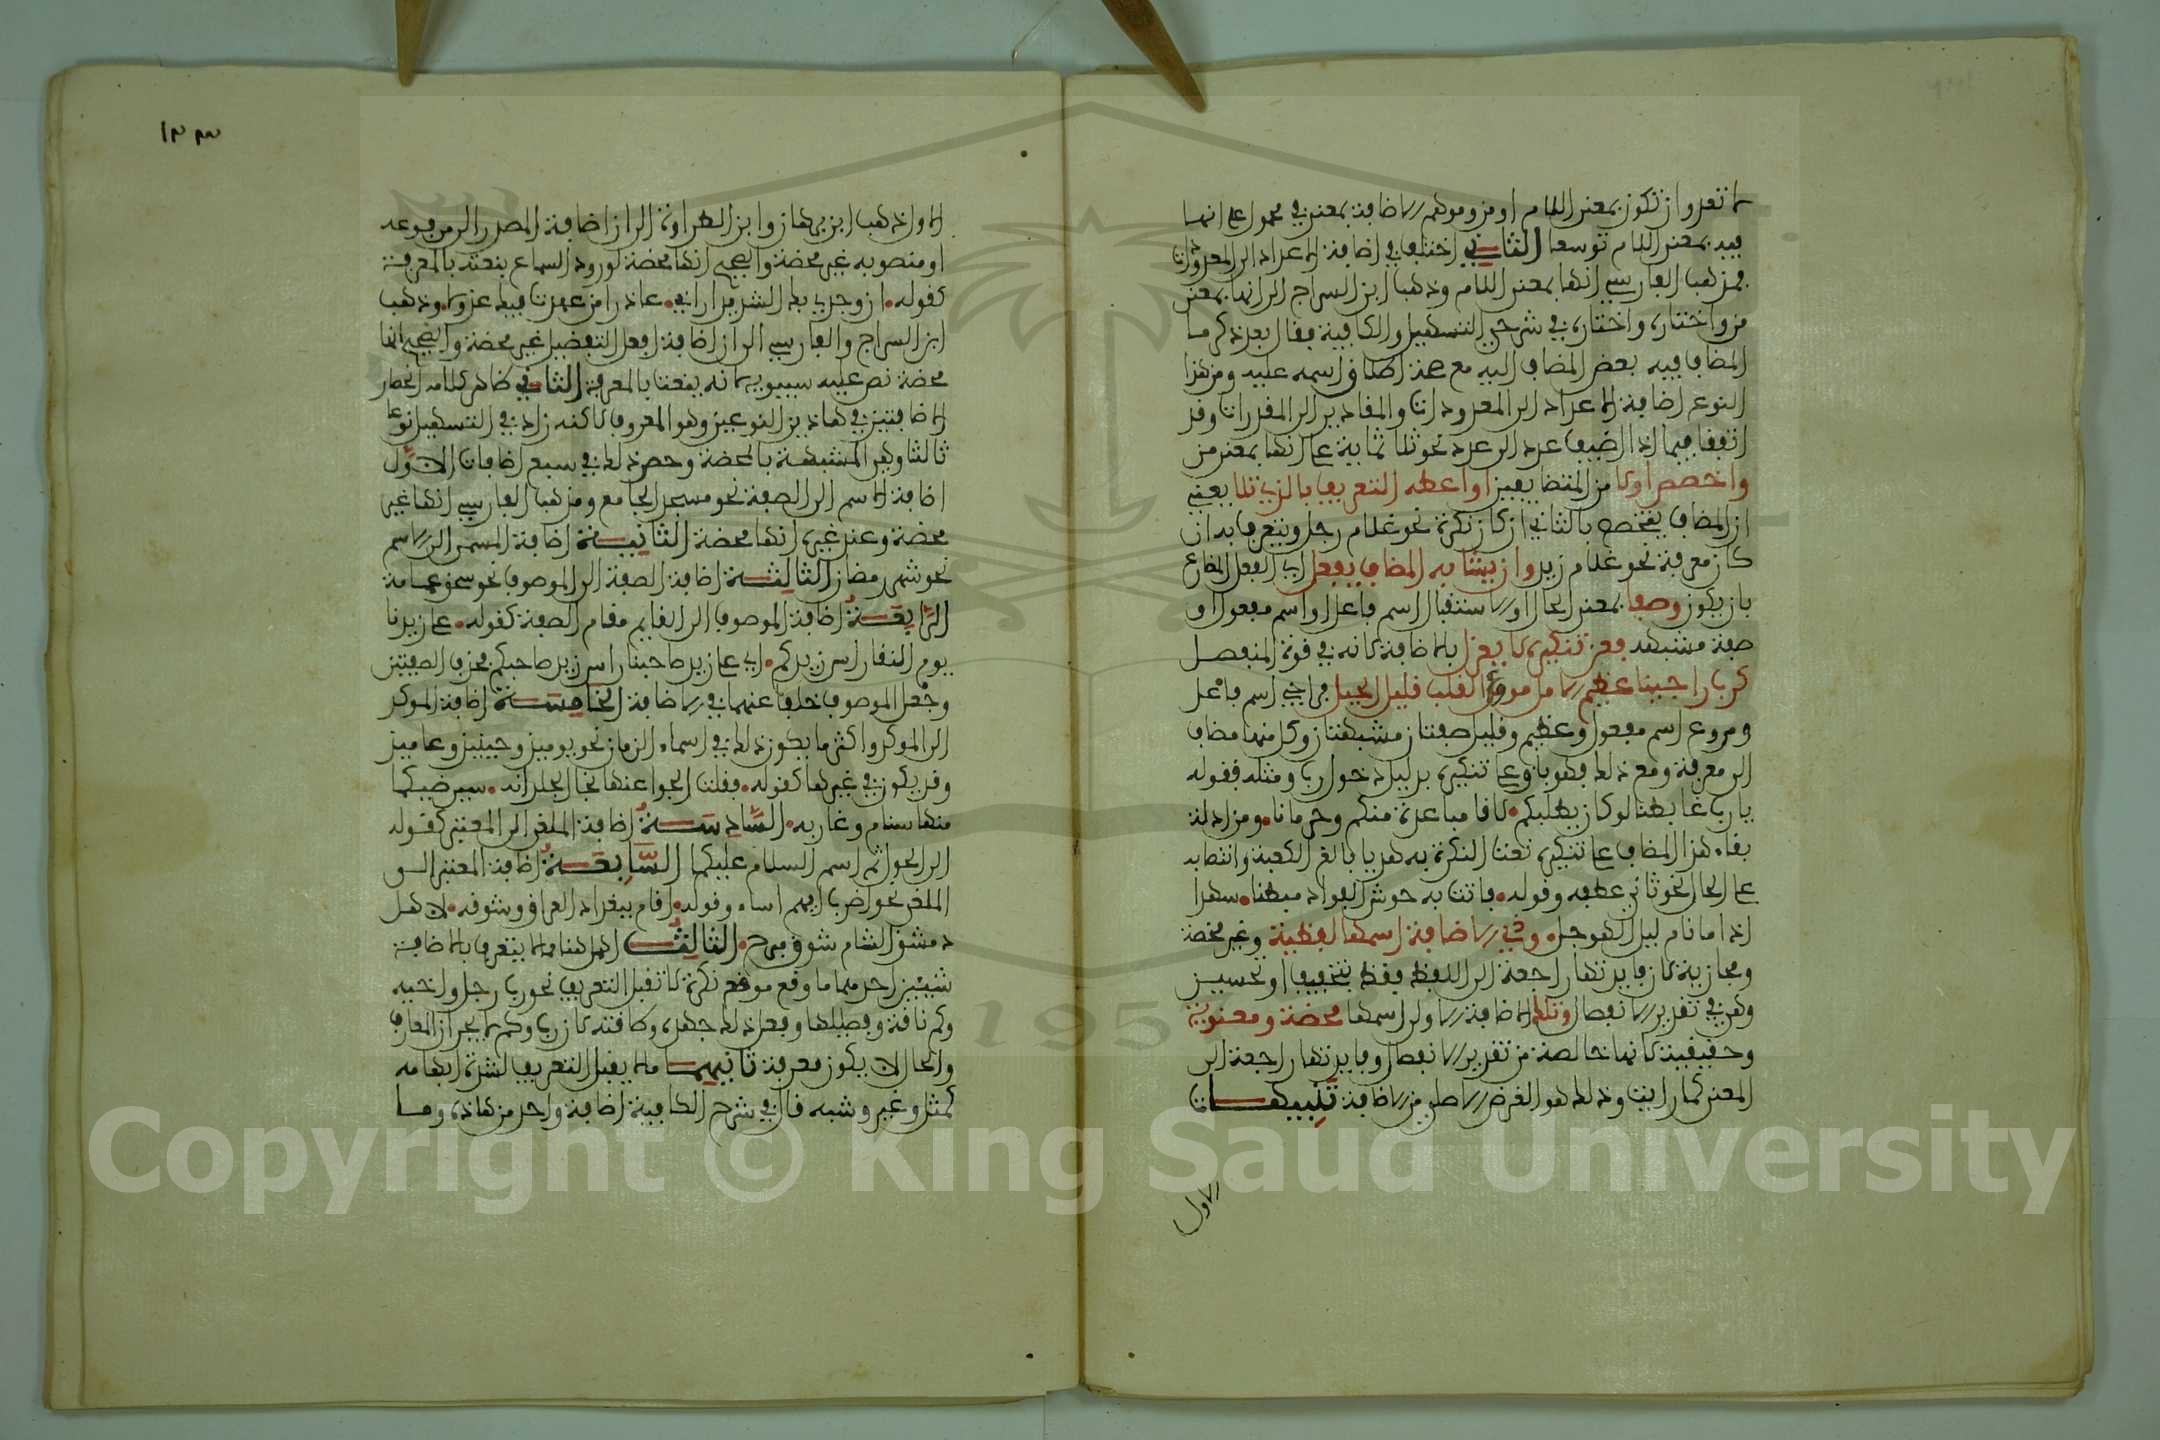 ما تقدر ان تكون بمعنى اللام او من وموهم الاضافة بمعنى في محمول على انها
فيه بمعنى اللام توسعا الثاني اختلف في اضافة الاعداد الى المعدودات
فمذهب الفارسي انها بمعنى اللام وذهب ابن السراج الى انها بمعنى
من واختاره في شرحي التسهيل والكافية فقال بعد ذكر ما
المضاف فيه بعض المضاف اليه مع صحة اطلاق اسمه عليه ومن هذا
النوع اضافة الاعداد الى المعدودات والمقادير الى المقدرات وقد
اتفقا فيما اذا اضيف عدد الى عدد نحو ثلاثماية على انها بمعنى من
واخصص اولا من المتضايفين او اعطه التعريف بالذي تلا يعني
ان المضاف يتخصص بالثاني ان كان نكرة نحو غلام رجل ويتعرف به ان
كان معرفة نحو غلام زيد وان يشابه المضاف يفعل اي الفعل المضارع
بان يكون وصفا بمعنى الحال او الاستقبال اسم فاعل او اسم مفعول او
صفة مشبهة فعن تنكيره لا يعزل بالاضافة لانه في قوة المنفصل
كرب راجينا عظيم الامل مروع القلب قليل الحيل فراجي اسم فاعل
ومروع اسم مفعول وعظيم وقليل صفتان مشبهتان وكل منها مضاف
الى معرفة ومع ذلك فهو باق على تنكيره بدليل دخول رب ومثله قوله
يا رب غابطنا لو كان يطلبكم لاقا مباعدة منكم وحرمانا ومن ادلة
بقاء هذا المضاف على تنكيره نعت النكرة به هديا بالغ الكعبة وانتصابه
على الحال نحو ثاني عطفه وقوله فاتت به حوش الفواد مبطنا سهدا
اذا ما نام ليل الهوجل وذي الاضافة اسمها لفظية وغير محضة
ومجازية لان فايدتها راجعة الى اللفظ فقط بتخفيف او تحسين
وهي في تقدير الانفصال وتلك الاضافة الاولى اسمها محضة ومعنوية
وحقيقية لانها خالصة من تقدير الانفصال وفايدتها راجعة الى
المعنى كما رايت وذلك هو الغرض الاصلي من الاضافة تنبيهات
الاول
١٣٣
الاول ذهب ابن برهان وابن الطراوة الى ان اضافة المصدر الى مرفوعه
او منصوبه غير محضة والصحيح انها محضة لورود السماع بنعته بالمعرفة
كقوله ان وجدي بك الشديد اراني عاذرا من عهدت فيك عذولا وذهب
ابن السراج والفارسي الى ان اضافة افعل التفضيل غير محضة والصحيح انها
محضة نص عليه سيبويه لانه ينعت بالمعرفة الثاني ظاهر كلامه انحصار
الاضافتين في هاذين النوعين وهو المعروف لاكنه زاد في التسهيل نوعا
ثالثا وهي المشبهة بالمحضة وحصر ذلك في سبع اضافات الاول
اضافة الاسم الى الصفة نحو مسجد الجامع ومذهب الفارسي انها غير
محضة وعند غيره انها محضة الثانية اضافة المسمى الى الاسم
نحو شهر رمضان الثالثة اضافة الصفة الى الموصوف نحو سحق عمامة
الرابعة اضافة الموصوف الى القايم مقام الصفة كقوله علا زيدنا
يوم النقا راس زيدكم اي علا زيد صاحبنا راس زيد صاحبكم فحذف الصفتين
وجعل الموصوف خلفا عنهما في الاضافة الخامسة اضافة الموكد
الى الموكد واكثر ما يكون ذلك في اسماء الزمان نحو يوميذ وحينيذ وعاميذ
وقد يكون في غيرها كقوله فقلت انجوا عنها نجا الجلد انه سيرضيكما
منها سنام وغاربه السادسة اضافة الملغى الى المعتبر كقوله
الى الحول ثم اسم السلام عليكما السابعة اضافة المعتبر الى
الملغى نحو اضرب ايهم اساء وقوله اقام ببغداد العراق وشوقه لاهل
دمشق الشام شوق مبرح الثالث اهمل هنا مما لا يتعرف بالاضافة
شييين احدهما ما وقع موقع نكرة لا تقبل التعريف نحو رب رجل واخيه
وكم ناقة وفصيلها وفعل ذلك جهده وطاقته لان رب وكم لا يجران المعارف
والحال لا يكون معرفة ثانيهما ما لا يقبل التعريف لشدة ابهامه
كمثل وغير وشبه قال في شرح الكافية اضافة واحد من هاذه وما
Copyright © King Saud University
1957